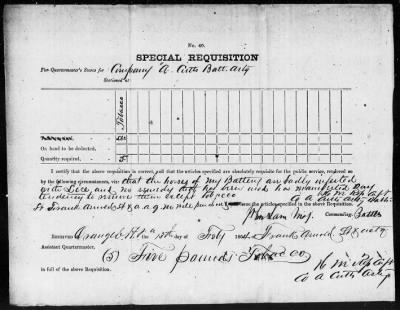 No. 40.
SPECIAL REQUISITION
For Quartermaster's Stores for Company "A" Cutts Batt. Arty
Stationed at
Tobacco
On hand to be deducted,
Quantity required,
I certify that the above requisition is correct, and that the articles specified are absolutely requisite for the public service, rendered so
by the following circumstances: that the horses of my Battery are badly infected
with Lice and no remedy that has been used has manifested any
tendency to relieve them except tobacco
H M Capt
Co A Cutts Arty Batt
Frank Arnold
issue the articles specified in the above Requisition.
Maj. Commanding
Received Orange C.H. 15th day of Feby 1864 of Frank Arnold
Assistant Quartermaster,
(5) Five pounds Tobacco
in full of the above Requisition.
H M Capt
Co A Cutts Arty